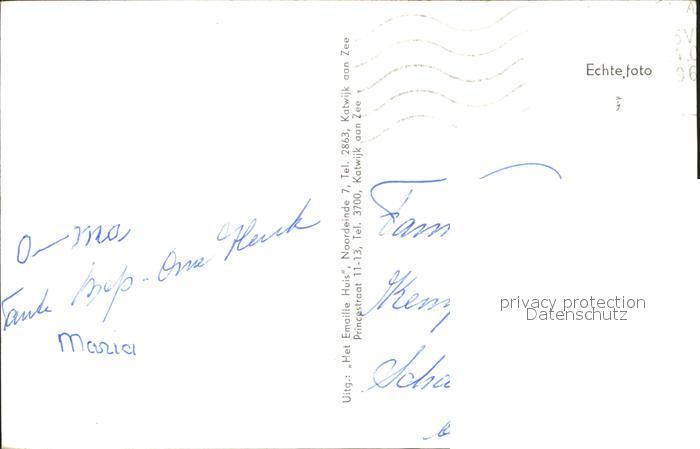 Oma
Tante Bep - Ome Henk
Maria
Uitg.: „Het Emaille Huis", Noordeinde 7, Tel. 2863, Katwijk aan Zee
Princestraat 11-13, Tel. 3700, Katwijk aan Zee
Echte foto
Fam
Kemp
Scha
privacy protection
Datenschutz